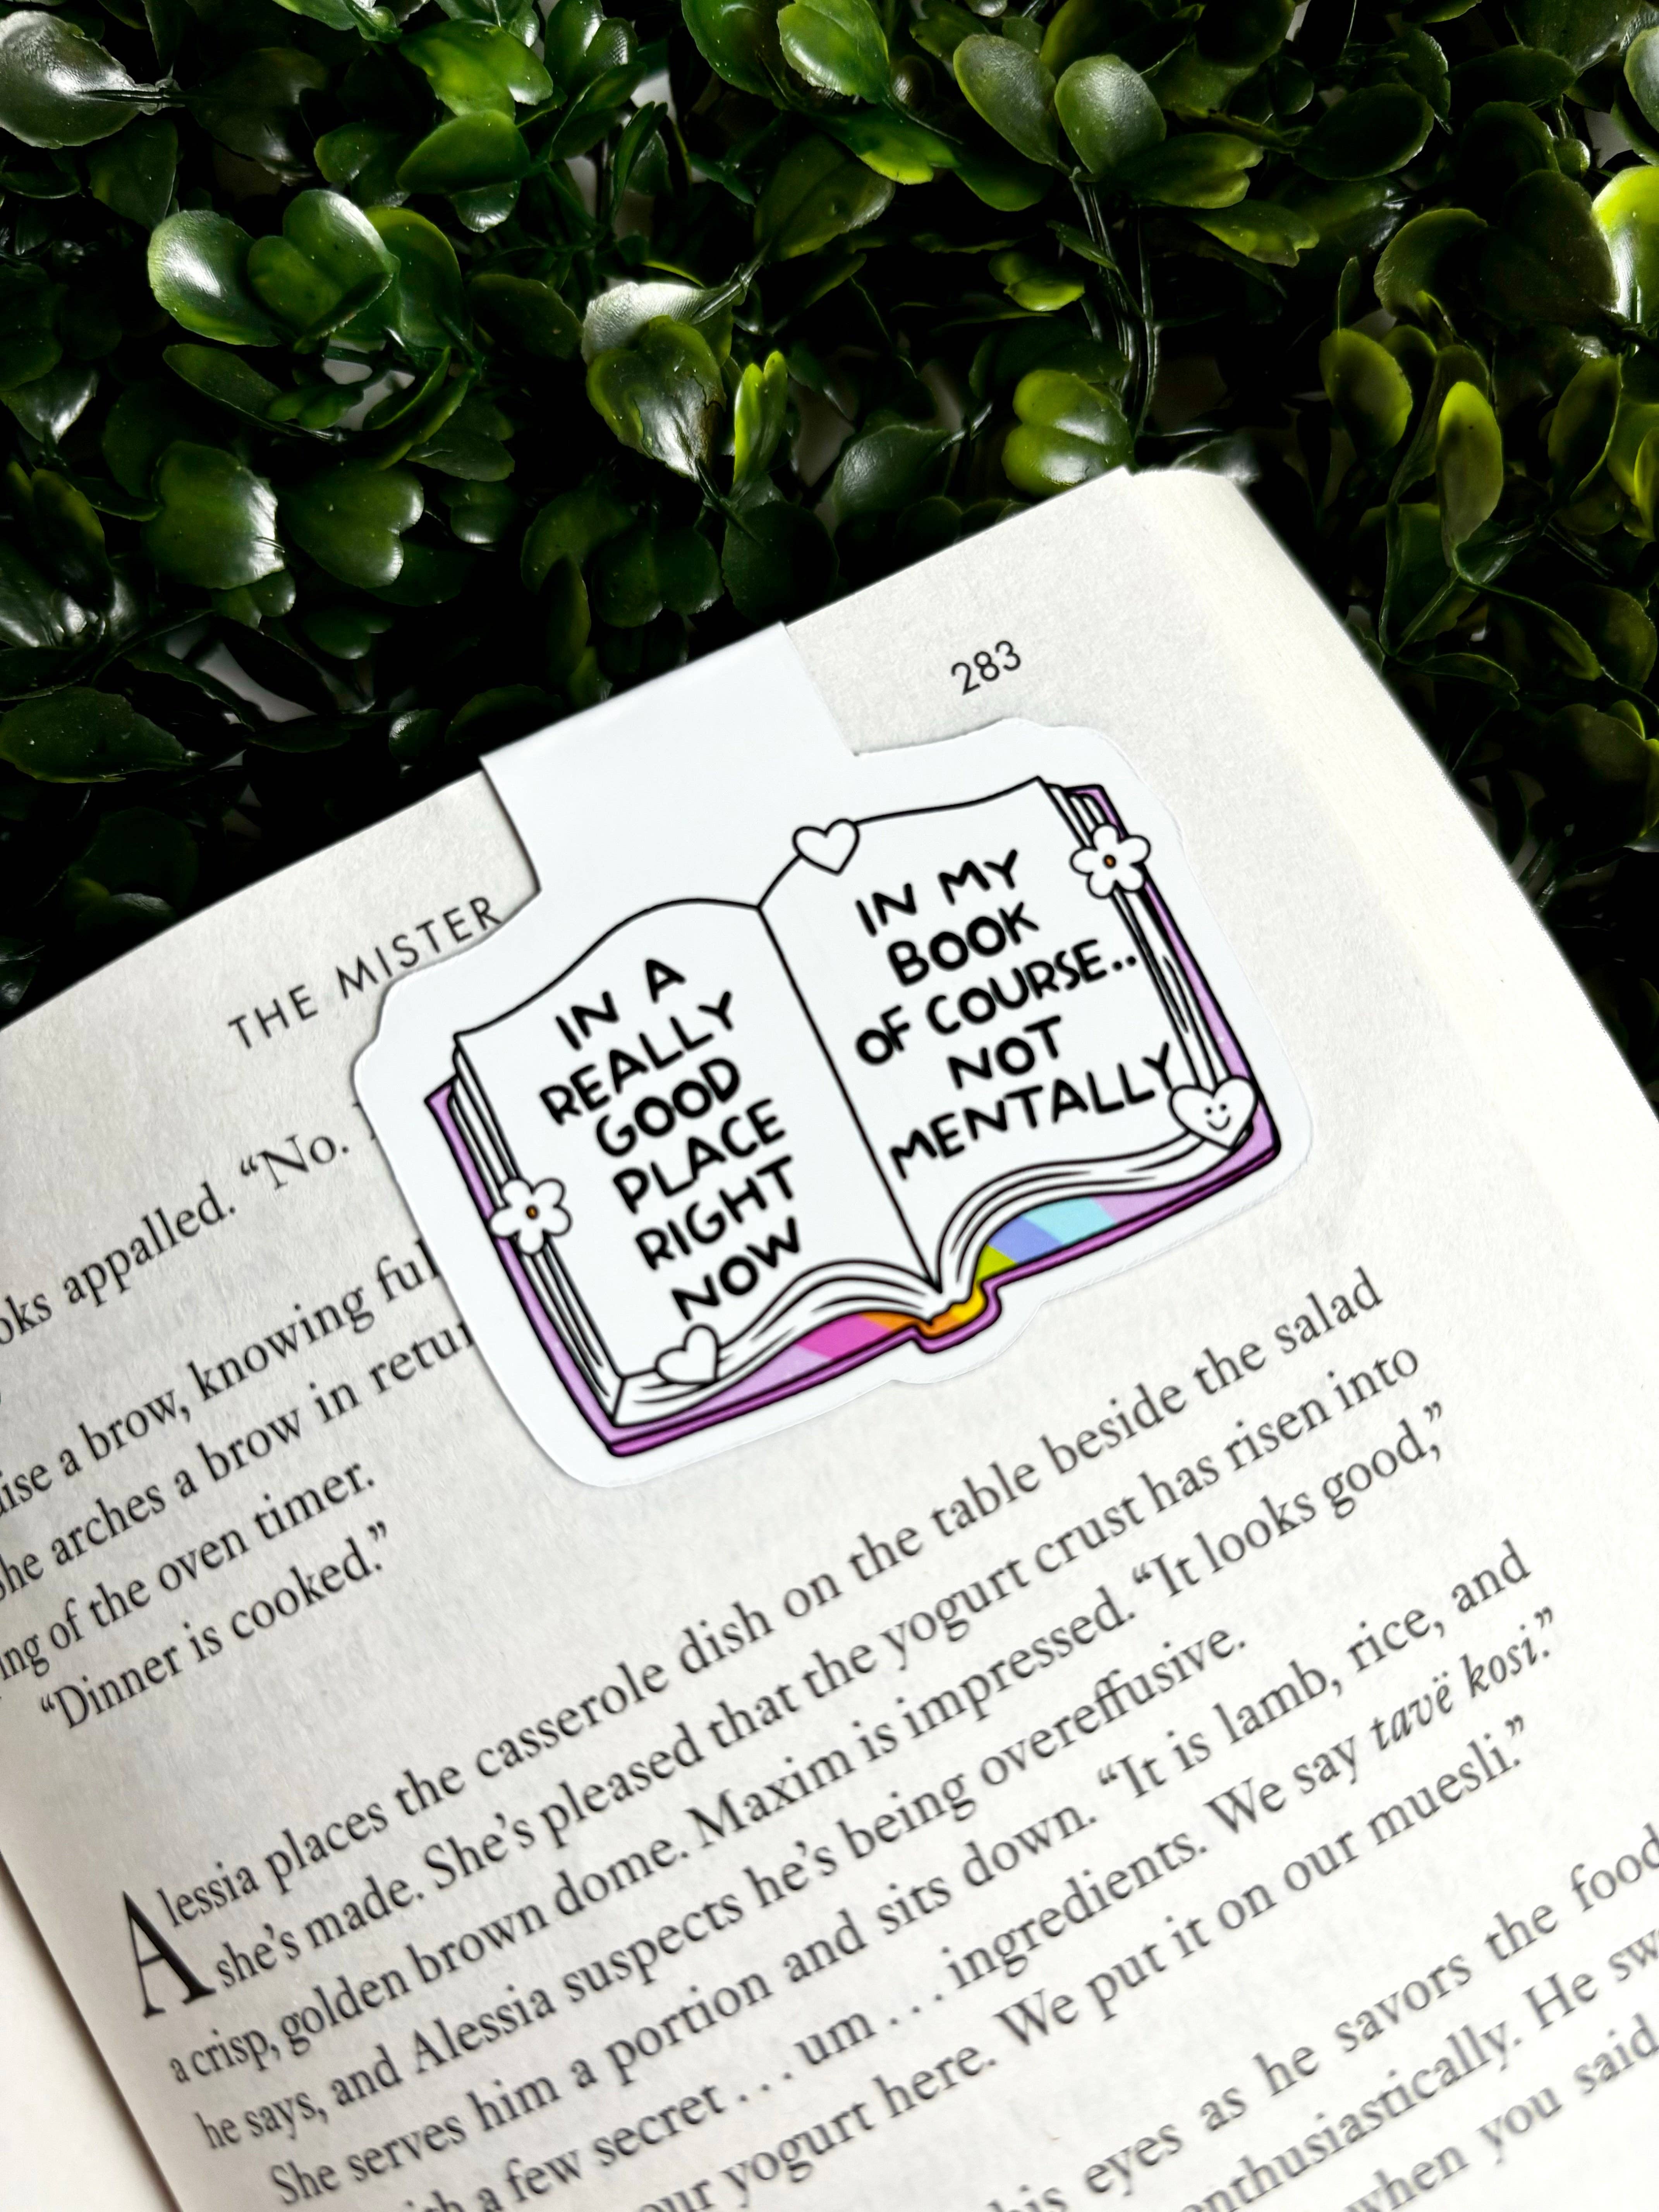 283
THE MISTER
IN A
REALLY
GOOD
PLACE
RIGHT
NOW
IN MY
BOOK
OF COURSE..
NOT
MENTALLY
appalled. “No.
a brow, knowing
arches a brow in
of the oven timer.
“Dinner is cooked.”
Alessia places the casserole dish on the table beside the salad
she’s made. She’s pleased that the yogurt crust has risen into
a crisp, golden brown dome. Maxim is impressed. “It looks good,”
he says, and Alessia suspects he’s being overeffusive.
She serves him a portion and sits down. “It is lamb, rice, and
a few secret . . . um . . . ingredients. We say tavë kosi.”
yogurt here. We put it on our muesli.”
eyes as he savors the food
enthusiastically. He
when you said